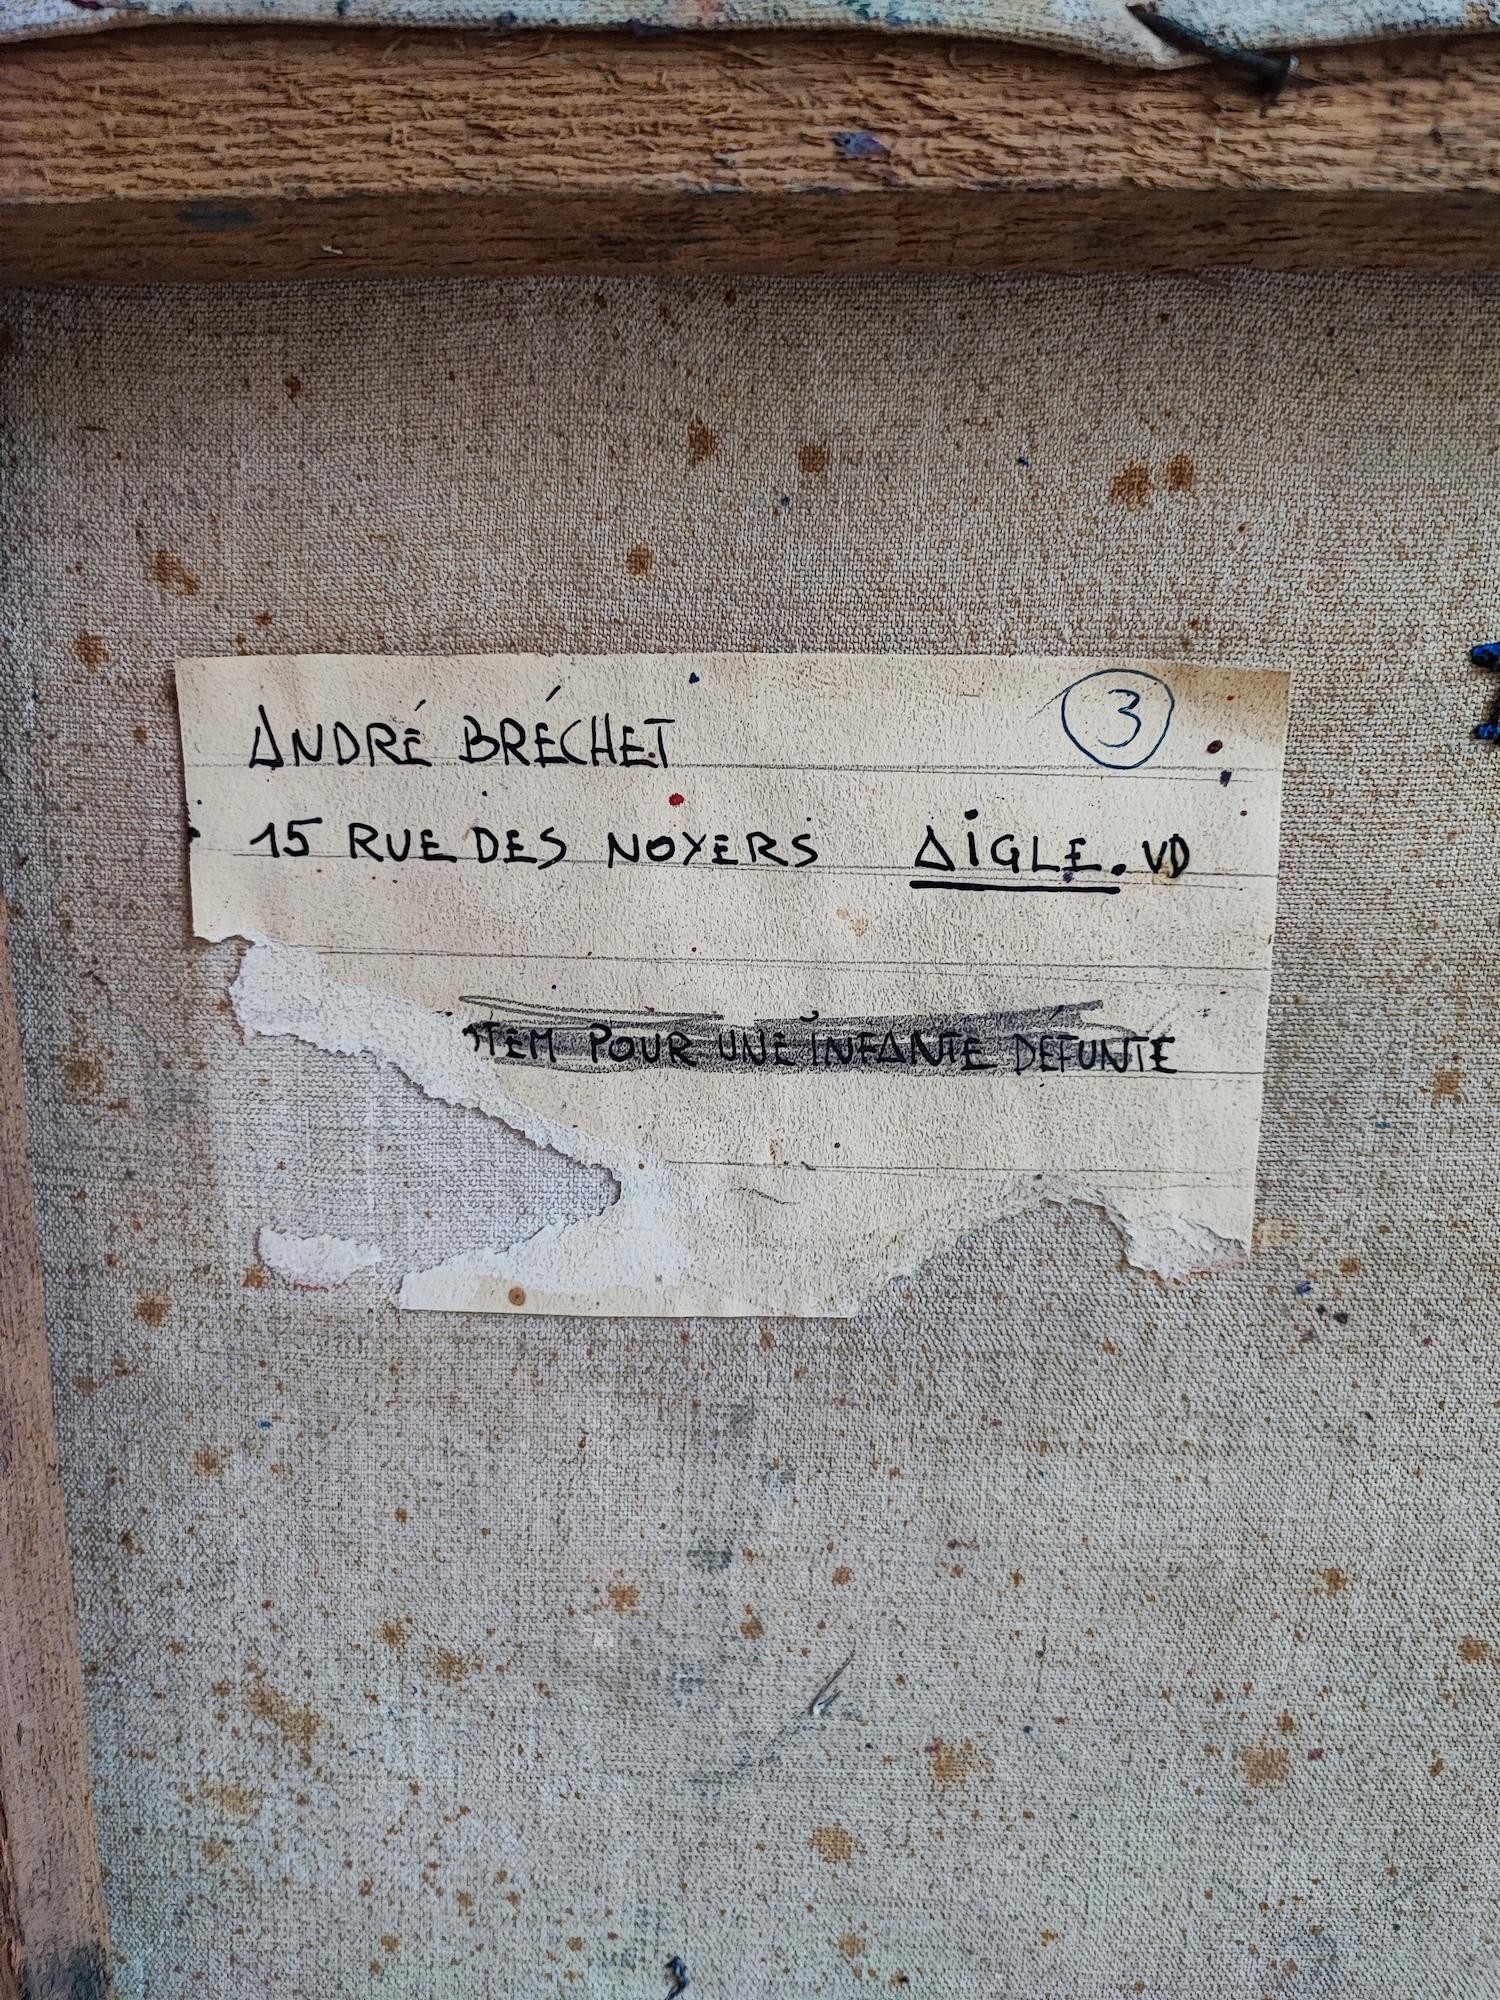 ANDRÉ BRÉCHET 3
15 RUE DES NOYERS AIGLE. VD
OTEM POUR UNE INFANTE DÉFUNTE